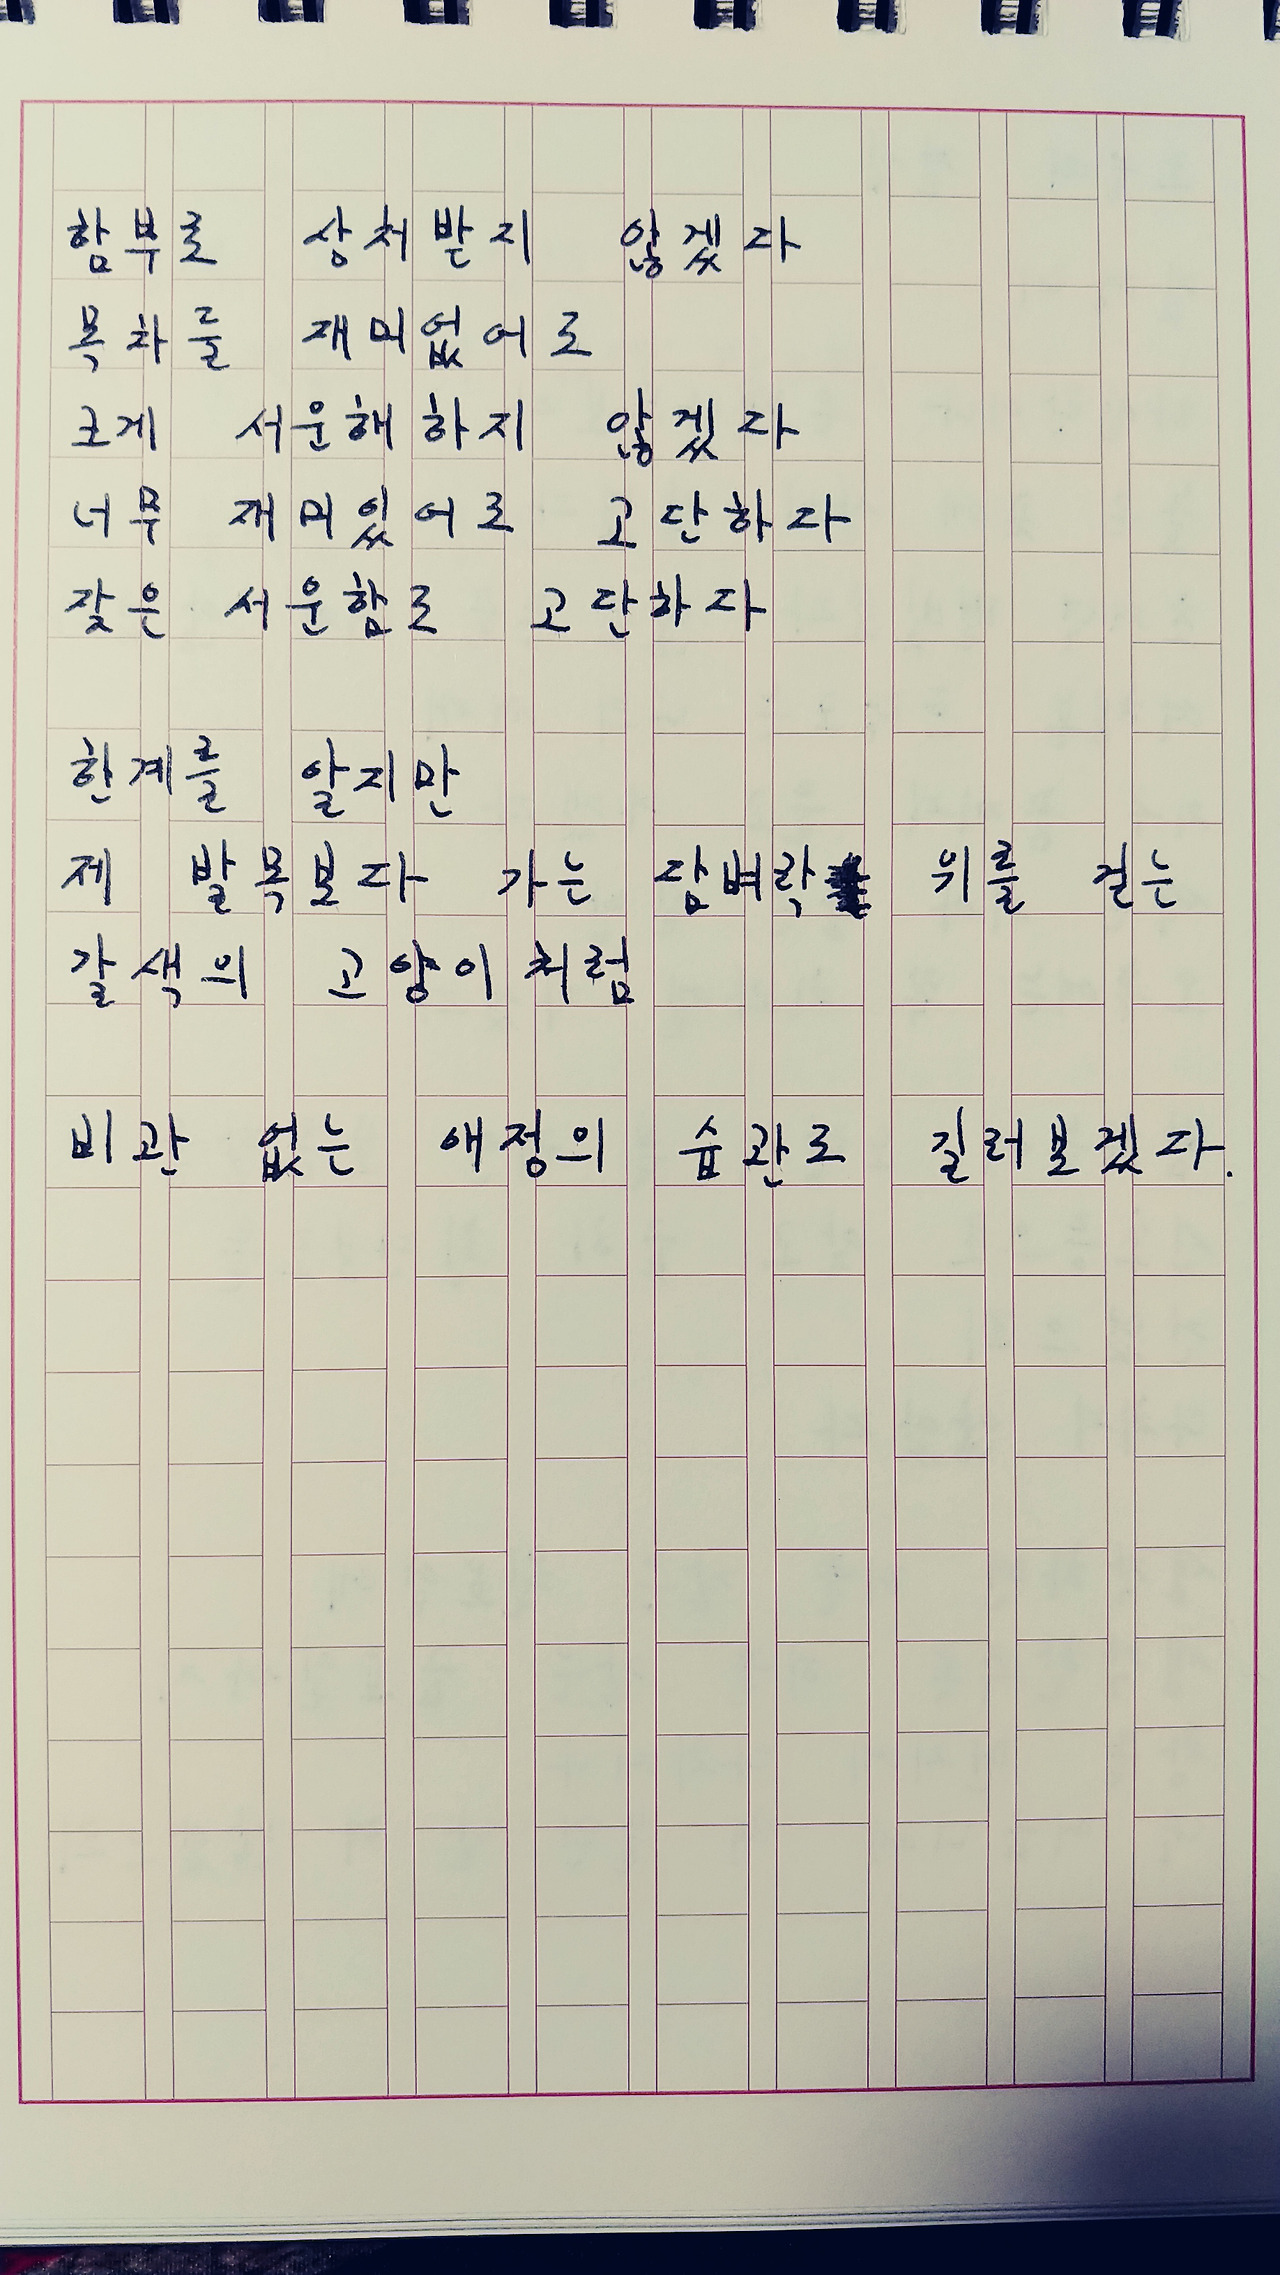 함부로 상처받지 않겠다
목차를 재미없어로
크게 서운해하지 않겠다
너무 재미있어로 고단하다
잦은 서운함로 고단하다
한계를 알지만
제 발목보다 가는 담벼락 위를 걷는
갈색의 고양이처럼
비관 없는 애정의 습관로 길러보겠다.